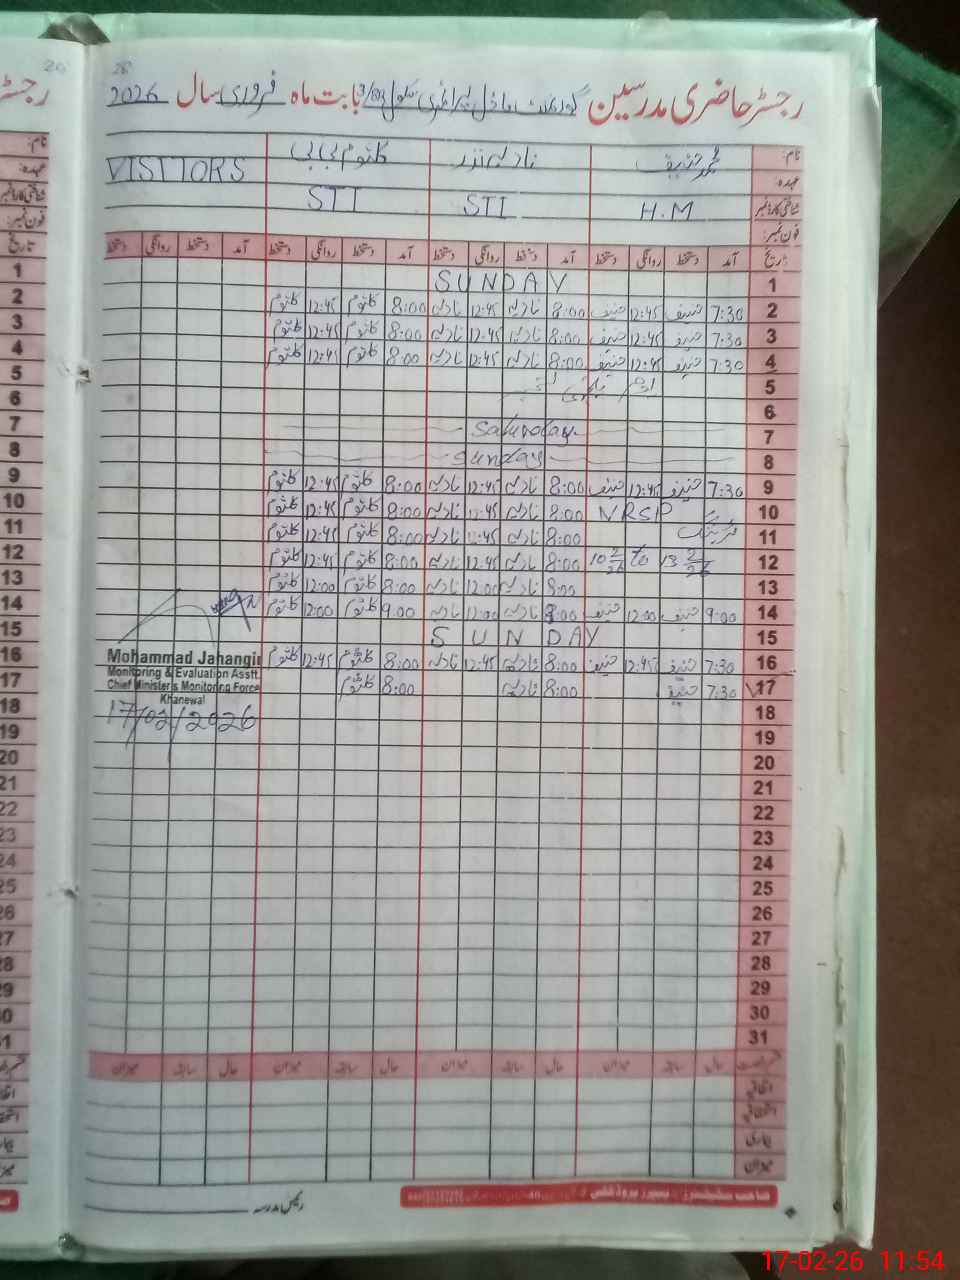 رجسٹر حاضری مدرسین گورنمنٹ ماڈل پرائمری سکول بابت ماہ فروری سال 2026
28
20
نام: محمد حنیف نادیہ نذر کلثوم بی بی VISITORS
عہدہ:
شناختی کارڈ نمبر H.M STI STI
فون نمبر:
تاریخ آمد دستخط روانگی دستخط آمد دستخط روانگی دستخط آمد دستخط روانگی دستخط آمد دستخط روانگی دستخط
1 SUNDAY
2 7:30 حنیف 12:45 حنیف 8:00 نادیہ 12:45 نادیہ 8:00 کلثوم 12:45 کلثوم
3 7:30 حنیف 12:45 حنیف 8:00 نادیہ 12:45 نادیہ 8:00 کلثوم 12:45 کلثوم
4 7:30 حنیف 12:45 حنیف 8:00 نادیہ 12:45 نادیہ 8:00 کلثوم 12:45 کلثوم
5
6
7 Saturday
8 Sunday
9 7:30 حنیف 12:45 حنیف 8:00 نادیہ 12:45 نادیہ 8:00 کلثوم 12:45 کلثوم
10 NRSP 8:00 نادیہ 12:45 نادیہ 8:00 کلثوم 12:45 کلثوم
11 ٹریننگ 8:00 نادیہ 12:45 نادیہ 8:00 کلثوم 12:45 کلثوم
12 10 2/26 to 13 2/26 8:00 نادیہ 12:45 نادیہ 8:00 کلثوم 12:45 کلثوم
13 8:00 نادیہ 12:00 نادیہ 8:00 کلثوم 12:00 کلثوم
14 9:00 حنیف 12:00 حنیف 9:00 نادیہ 12:00 نادیہ 9:00 کلثوم 12:00 کلثوم
15 SUNDAY
16 7:30 حنیف 12:45 حنیف 8:00 نادیہ 12:45 نادیہ 8:00 کلثوم 12:45 کلثوم
17 7:30 حنیف 8:00 نادیہ 8:00 کلثوم
Mohammad Jahangir
Monitoring & Evaluation Asstt.
Chief Minister's Monitoring Force
Khanewal
17/02/2026
18
19
20
21
22
23
24
25
26
27
28
29
30
31
حال سابقہ میزان حال سابقہ میزان حال سابقہ میزان حال سابقہ میزان
اتفاقیہ
استحقاقیہ
بیماری
میزان
رئیس مدرسہ
17-02-26 11:54